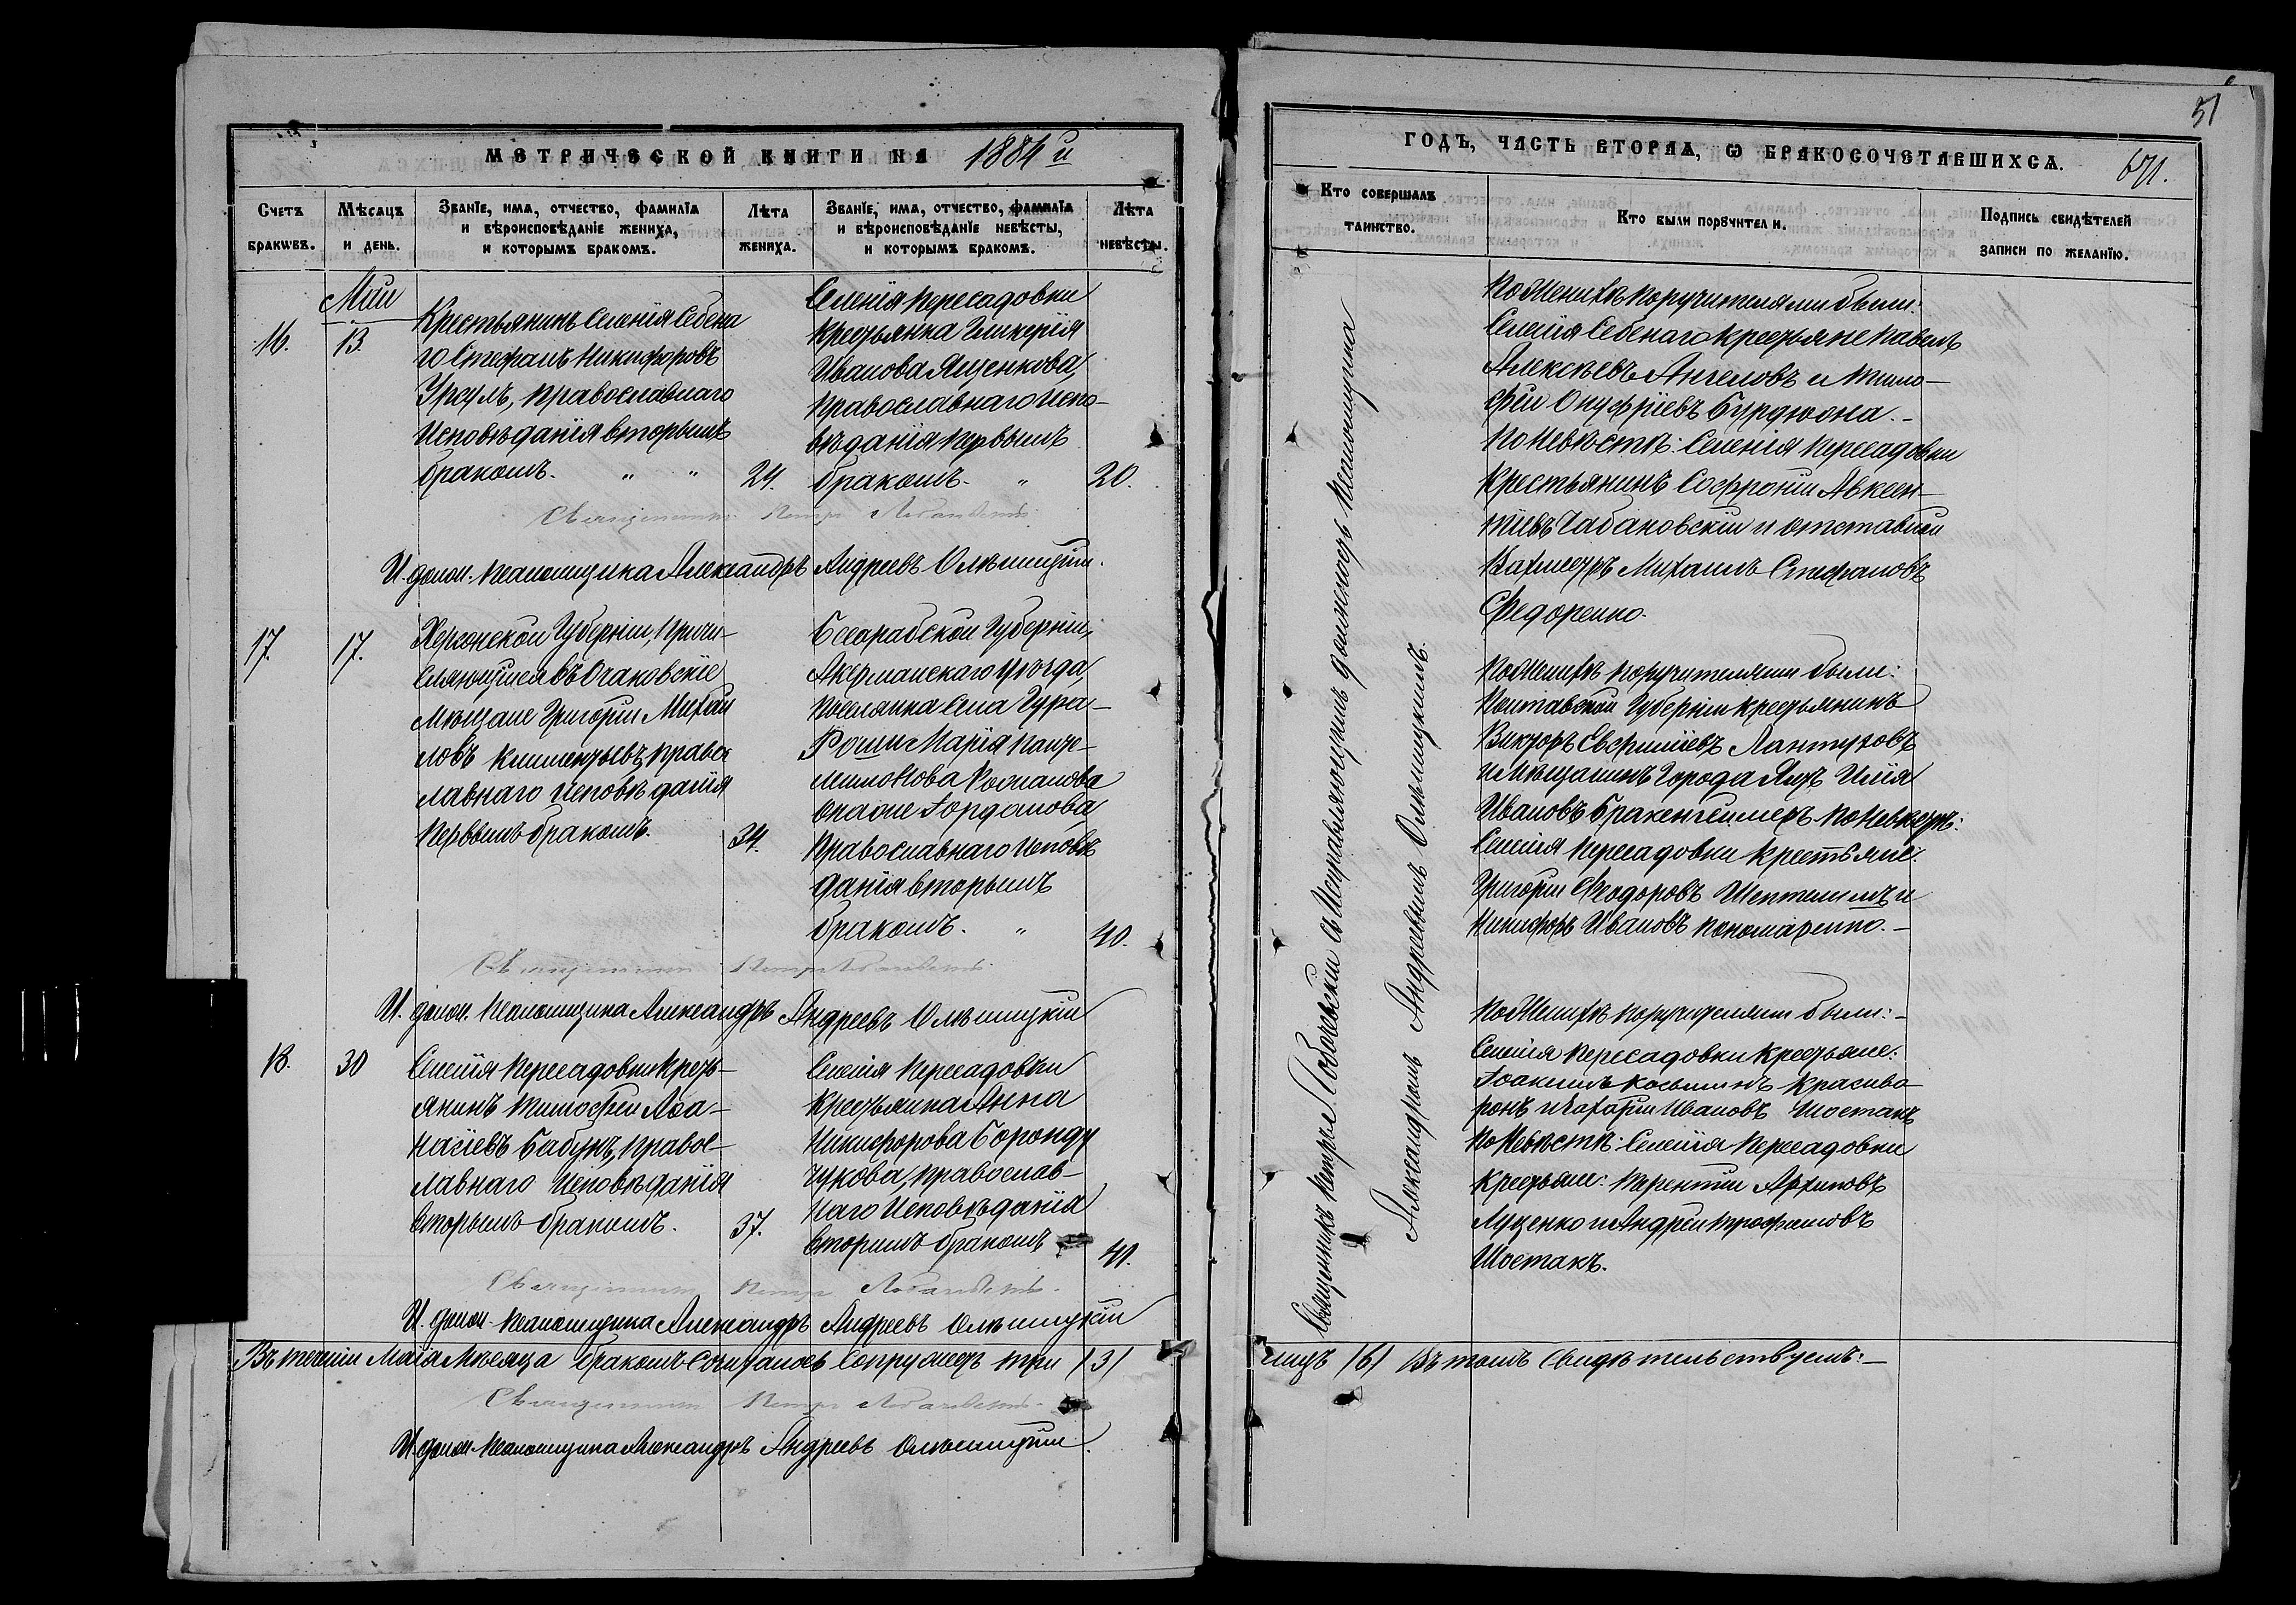 МЕТРИЧЕСКОЙ КНИГИ НА 1884 й
Счетъ браковъ.
Мѣсяцъ и день.
Званїе, имя, отчество, фамилїя
и вѣроисповѣданїе жениха,
и которымъ бракомъ.
Лѣта
жениха.
Званїе, имя, отчество, фамилїя
и вѣроисповѣданїе невѣсты,
и которымъ бракомъ.
Лѣта
невѣсты.
Май
16.
13.
Крестьянинъ Селенія Себена
го Стефанъ Никифоровъ
Урсулъ, Православнаго
Исповѣданія вторымъ
бракомъ.
24.
Селенія Пересадовки
Крестьянка Гликерія
Иванова Яценкова,
Православнаго Испо-
вѣданія первымъ
бракомъ.
20.
Священникъ Петръ
И. долж. Псаломщика Александръ Андреевъ Ольшицкій.
17.
17.
Херсонской Губерніи, Причи-
сляющійся въ Очаковскіе
Мѣщане Григорій Михай
ловъ Климентьевъ, Правос
лавнаго Исповѣданія
Первымъ бракомъ.
34.
Бесарабской Губерніи,
Акерманскаго Уѣзда,
Поселянка Села Гура-
Роши Марія Панте-
леимонова
Іорданова,
Православнаго Исповѣ
данія вторымъ
бракомъ.
40.
Священникъ Петръ
И. долж. Псаломщика Александръ Андреевъ Ольшицкій
18.
30
Селенія Пересадовки Кресть-
янинъ Тимофей Аѳа-
насіевъ Бабукъ, Правос-
лавнаго Исповѣданія
вторымъ бракомъ.
37.
Селенія Пересадовки
Крестьянка Анна
Никифорова Боронду
чукова, Православ-
наго Исповѣданія
вторымъ бракомъ
41.
Священникъ Петръ
И. долж. Псаломщика Александръ Андреевъ Ольшицкій
Въ теченіи Маія Мѣсяца бракомъ Сочеталось Супружест три /3/
Священникъ Петръ
И. долж. Псаломщика Александръ Андреевъ Ольшицкій.
51
ГОДЪ, ЧАСТЬ ВТОРАЯ, Ѡ БРАКОСОЧЕТАВШИХСЯ.
671.
Кто совершалъ
таинство.
Кто были порꙋчители.
Подпись свидѣтелей
записи по желанїю.
Священникъ Петръ съ Исправляющимъ должность Псаломщика
Александромъ Андреевымъ Ольшицкимъ.
По Женихѣ Поручителями были:
Селенія Себенаго Крестьяне Павелъ
Алексѣевъ Ангеловъ и Тимо-
фей Онуфріевъ Бурдюжа.-
По Невѣстѣ: Селенія Пересадовки
Крестьянинъ Софроній Авксен-
тіевъ Чабановскій и отставной
Вахмистръ Михаилъ Стефановъ
Федоренко.
По Женихѣ Поручителями были:
Полтавской Губерніи Крестьянинъ
Викторъ Евфиміевъ Лантуховъ
и Мѣщанинъ Города Яссъ Илія
Ивановъ Бракенгеймеръ. По Невѣстѣ:
Селенія Пересадовки Крестьяне:
Григорій Феодоровъ и
Никифоръ Ивановъ Пономаренко.-
По Женихѣ Поручителями были:-
Селенія Пересадовки Крестьяне:
Іоакимъ Косьминъ Красиво-
ронъ и Захарій Ивановъ Шостакъ
По Невѣстѣ: Селенія Пересадовки
Крестьяне: Терентій Архиповъ
Луценко и Андрей Трофимовъ
Шостакъ.
лицъ /6/ Въ томъ Свидѣтельствуемъ:-